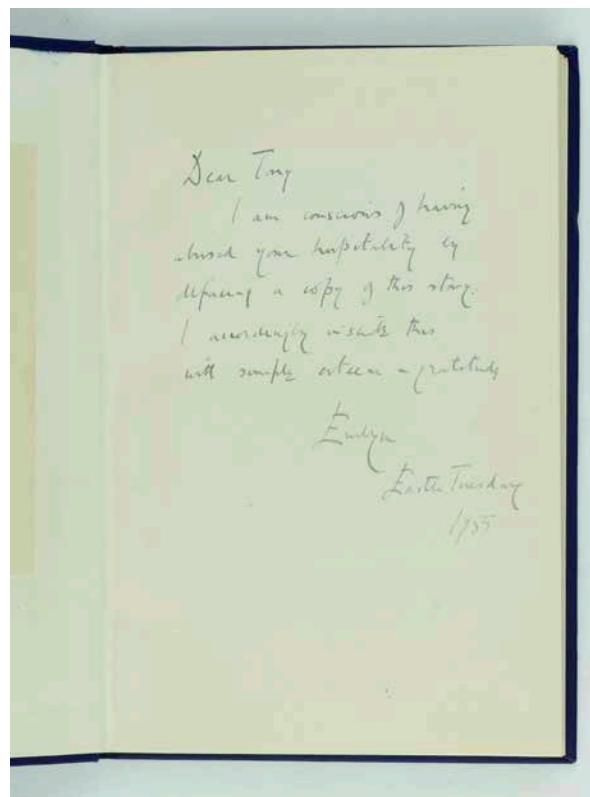 Dear Tony
I am conscious of having
abused your hospitality by
defacing a copy of this story.
I accordingly inscribe this
with simple esteem & gratitude
Evelyn
Easter Tuesday
1955